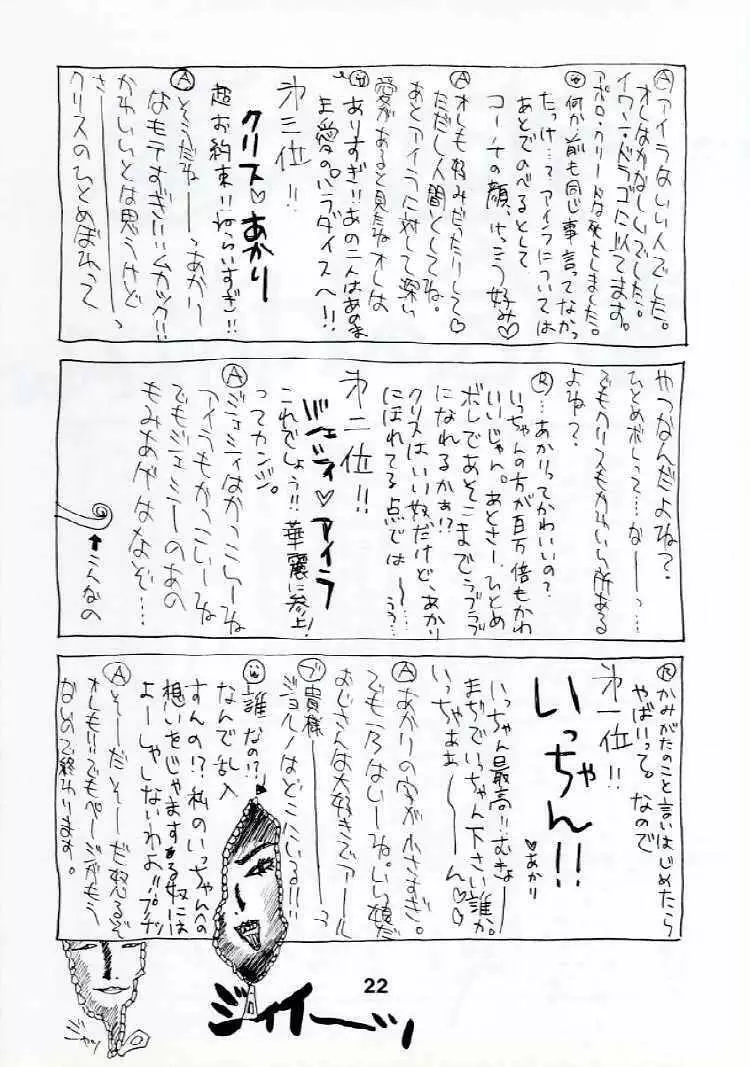 Ⓐアイラはいい人でした。
オレはかなしいでした。
イワン・ドラゴに似てます。
アポロ・クリードは死にました。
何か前も同じ事言ってなかっ
たっけ…?アイラについては
あとでのべるとして
コーチの顔、けっこう好み♡
Ⓐオレも好みだったりして♡
ただし人間としてね。
あとアイラに対して深い
愛があると見たねオレは
ありすぎ!!あの二人はあのま
ま愛のパラダイスへ!!
第三位!!
クリス♡あかり
超お約束!!ねらいすぎ!!
Ⓐそうだねーっあかり
なもテすぎ!!ムカツク!!
かわいいとは思うけど
さ――――っ
クリスのひとめぼれって
やつなんだよね?
ひとめボレって…なーっ…
でもクリスもかわいい所ある
よね?
Ⓡ…あかりってかわいいの?
いっちゃんの方が百万倍もかわ
いいじゃん。あとさー、ひとめ
ボレであそこまでラブラブ
になれるかぁ!?
クリスはいい奴だけど、あかり
にほれてる点では〜…うぅ…
第二位!!
ジェシィ♡アイラ
これでしょう!!華麗に参上!
ってカンジ。
Ⓐジェシィはかっこいーね
アイラもかっこいーね
でもジェシーのあの
もみあげはなぞ…
↑こんなの
Ⓡかみがたのこと言いはじめたら
やばいって。なので
第一位!!
いっちゃん!!
♡あかり
いっちゃん最高!!むきょー
まぢでいっちゃん下さい誰か。
いっちゃぁぁ〜〜ん♡♡
Ⓐあかりの字が小さすぎ。
でも乃はいーね。いい娘だ
おじさんは大好きであール
ブ貴様――――っ
ジョルノはどこにいる!!!
誰なの!?
なんで乱入
すんの!?私のいっちゃんへの
想いをじゃまする奴には
よーしゃしないわよ!!プンプン
Ⓐそーだそーだ怒るぞ
オレも!!でもページがもう
ないので終わります。
22
ジィイーッ
ジャッ